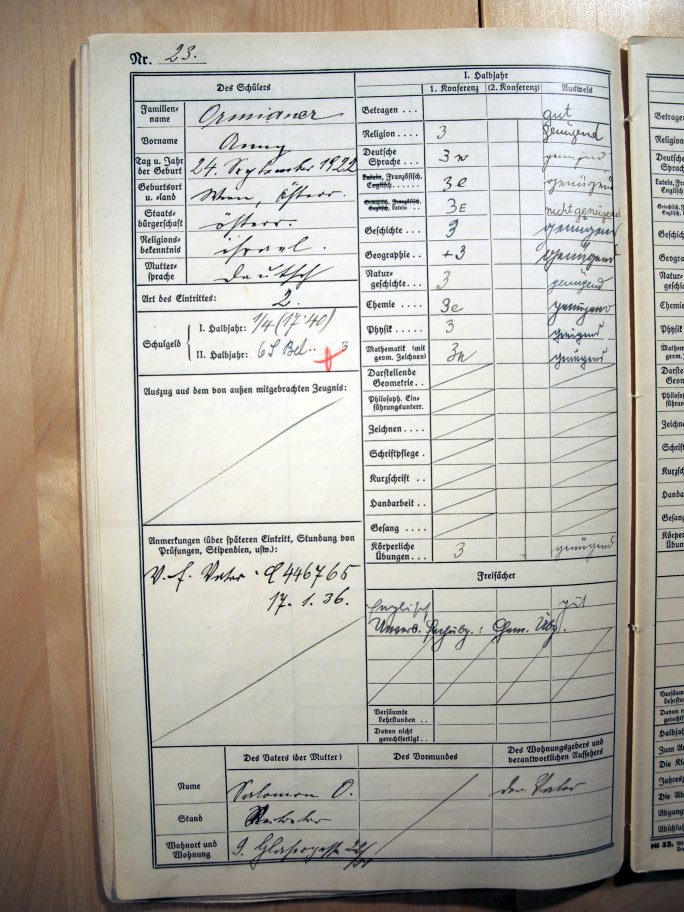 Nr. 23.
Des Schülers
I. Halbjahr
1. Konferenz (2. Konferenz) Ausweis
Familienname Ormianer
Vorname Anny
Tag u. Jahr der Geburt 24. September 1922
Geburtsort u. =land Wien, Österr.
Staatsbürgerschaft österr.
Religionsbekenntnis israel.
Muttersprache deutsch
Art des Eintrittes: 2.
Schulgeld
I. Halbjahr: 1/4 (17·40)
II. Halbjahr: 6 S Bel..
Auszug aus dem von außen mitgebrachten Zeugnis:
Anmerkungen (über späteren Eintritt, Stundung von Prüfungen, Stipendien, usw.):
V. f. Vater
446765
17. 1. 36.
Betragen . . . gut
Religion . . . . 3 genügend
Deutsche Sprache . . . 3 genügend
Latein, Französisch, Englisch . . . . . 3e genügend
Griechisch, Französisch, Englisch, Latein . . 3E nichtgenügend
Geschichte . . . 3 genügend
Geographie . . +3 genügend
Naturgeschichte . . . 3 genügend
Chemie . . . . 3e genügend
Physik . . . . 3 genügend
Mathematik (mit geom. Zeichnen) 3 genügend
Darstellende Geometrie . .
Philosoph. Einführungsunterr.
Zeichnen . . . .
Schriftpflege .
Kurzschrift .
Handarbeit . .
Gesang . . . .
Körperliche Übungen . . 3 genügend
Freifächer
Englisch gut
Unverb. : Chem. Übg.
Versäumte Lehrstunden . .
Davon nicht gerechtfertigt . .
Des Vaters (der Mutter) Des Vormundes Des Wohnungsgebers und verantwortlichen Aufsehers
Name Salomon O. der Vater
Stand
Wohnort und Wohnung 9. Glasergasse